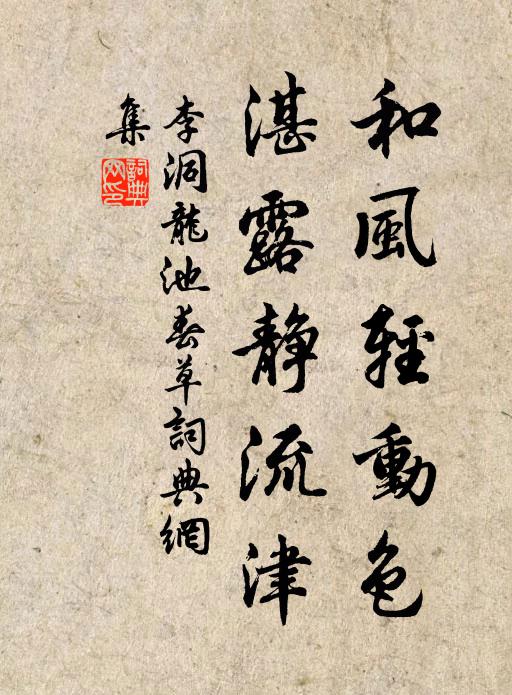 和風輕動色
湛露靜流津
李洞龍池春草詞典網
集
詞典網印